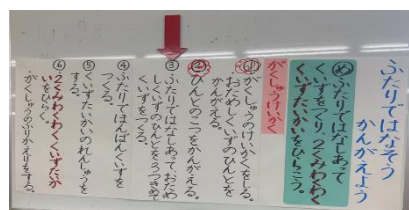 ふたりではなそう
かんがえよう
め ふたりではなしあって
くいずをつくり、２くみわくわく
くいずたいかいをひらこう。
がくしゅうけいかく
① がくしゅうのけいかくをしる。
おためしくいずのひんとを
かんがえる。
② ひんとのこつをかんがえる。
③ ふたりではなしあっておため
しくいずのひんとを３つきめて
くいずをつくる。
④ ふたりでほんばんくいずを
つくる。
⑤ くいずたいかいのれんしゅうを
する。
⑥ ２くみわくわくくいずたいか
いをひらく。
がくしゅうのふりかえりをする。